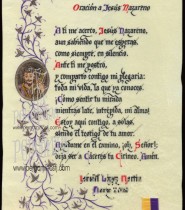 Oración a Jesús Nazareno
A ti me acerco, Jesús Nazareno,
aun sabiendo que me esperas,
como siempre, en silencio.
Ante ti me postro,
y comparto contigo mi plegaria:
toda mi vida, la que ya conoces.
¡Cómo sentir tu mirada
mientras late, intrépido, mi alma!
Estoy aquí contigo, a solas,
siendo el testigo de tu amor.
en el camino, ¡oh, Señor!:
deja ser a Cáceres tu Cirineo. Amén.